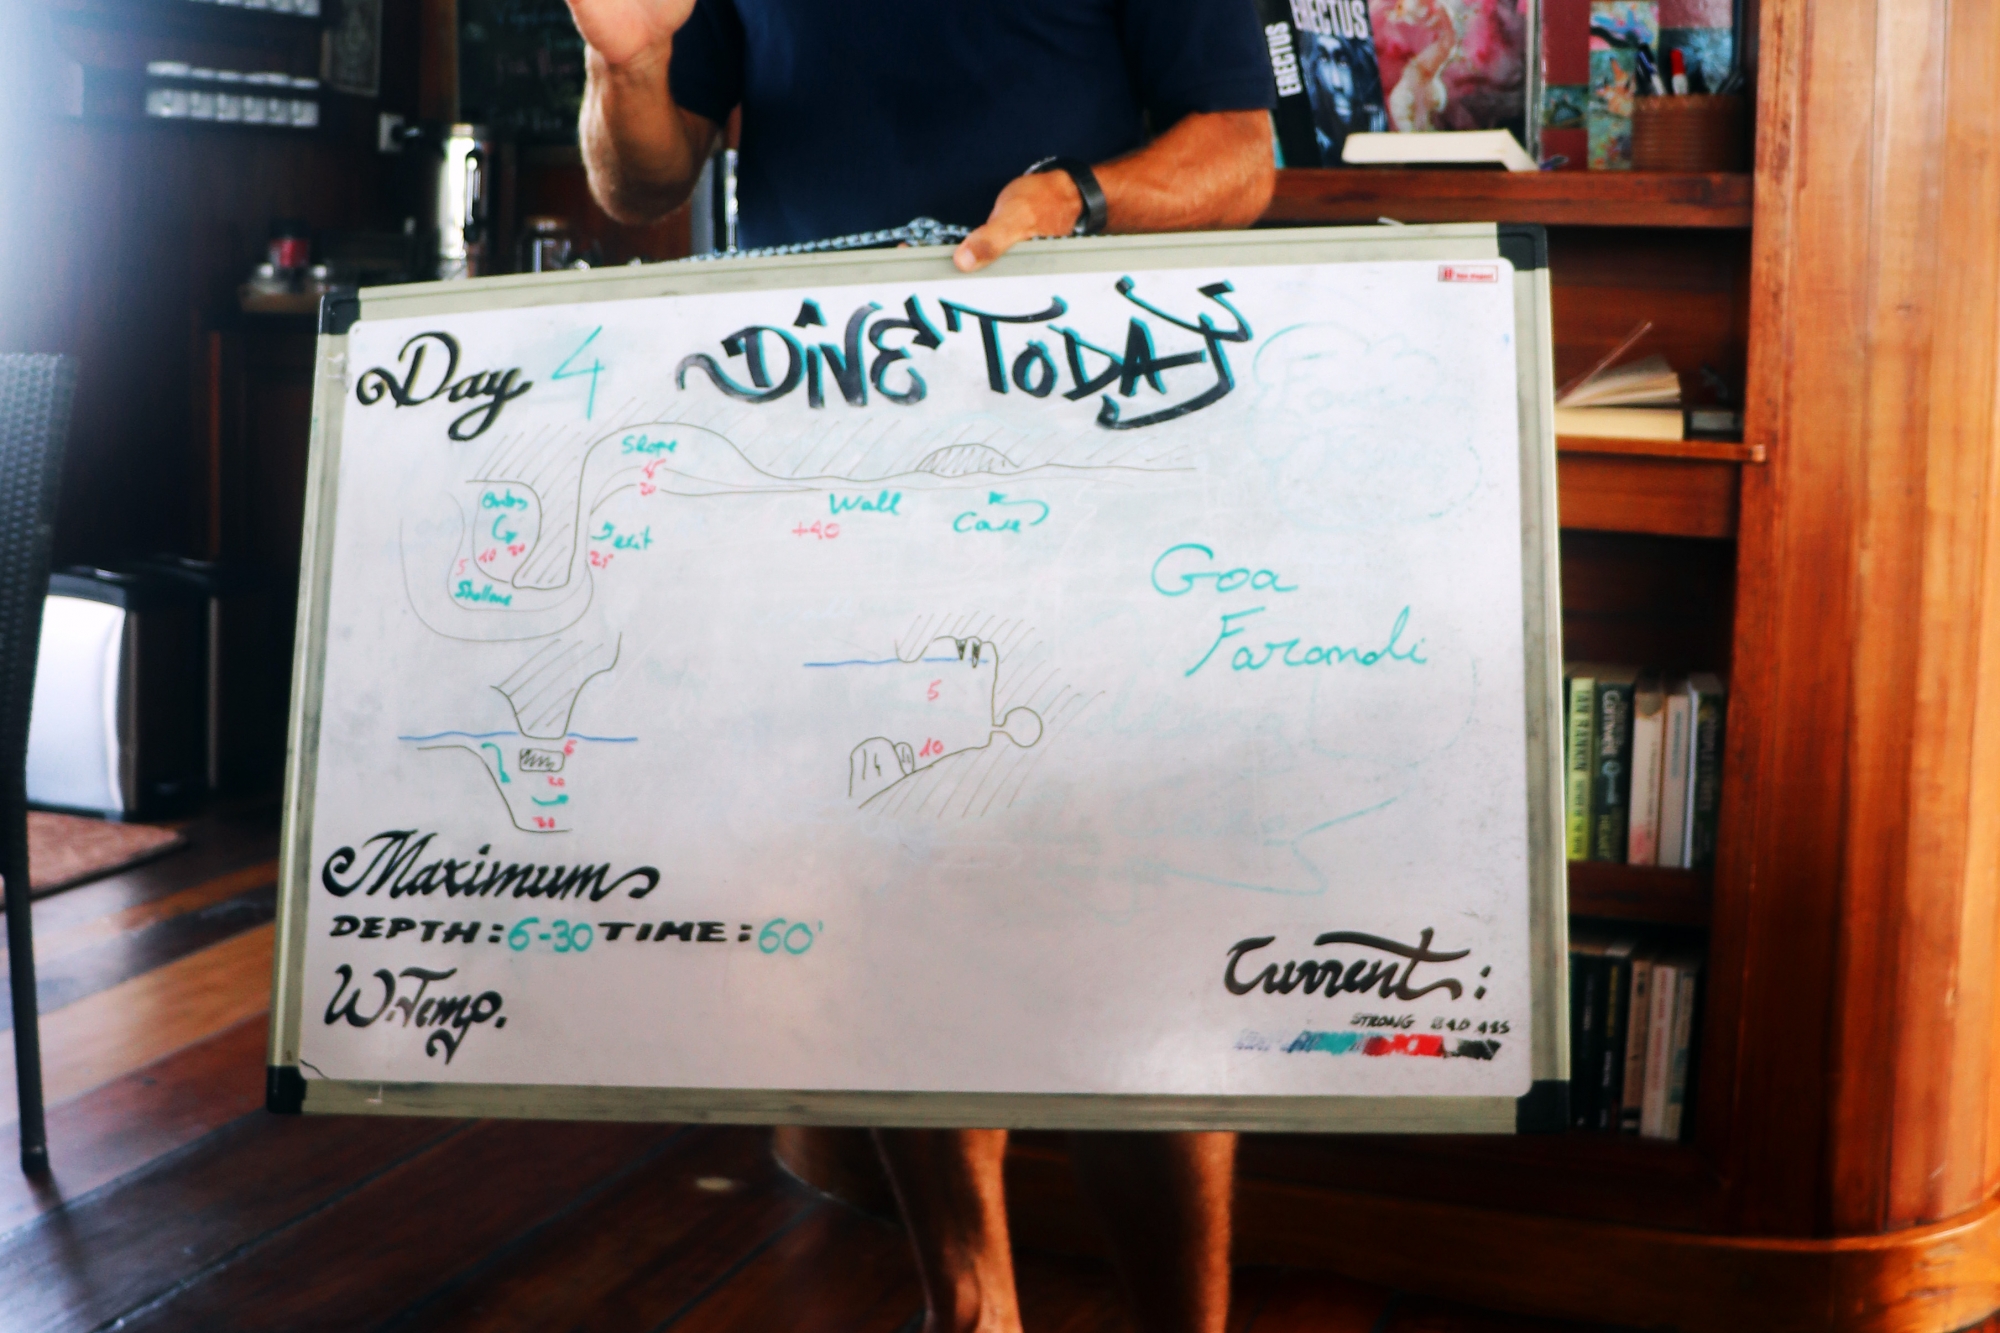 ERECTUS
ERECTUS
Day 4
DIVE TODAY
Slope
15
20
Wall
+40
Cave
exit
25
5
10
Goa
Farondi
5
10
6
30
Maximum
DEPTH: 6-30 TIME: 60'
W.Temp.
Current:
STRONG BAD ASS
IAN RANKIN